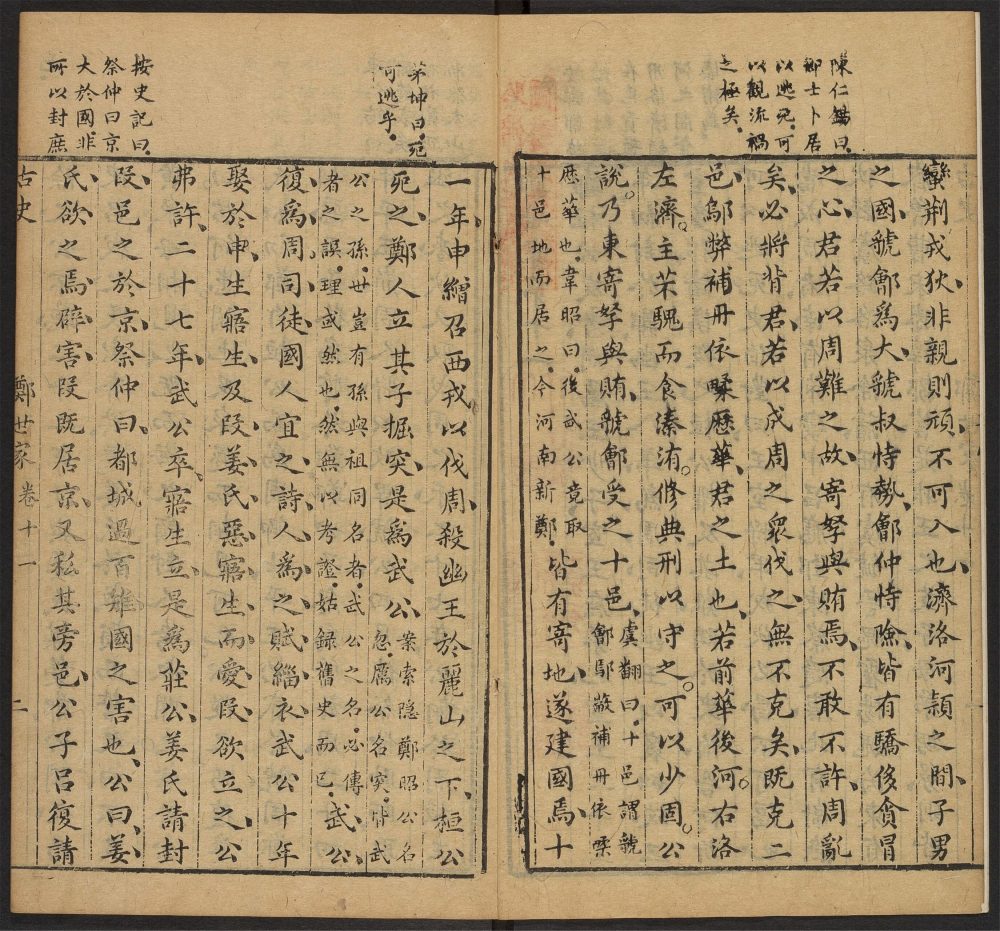 陳仁錫曰
鄭士卜居
以逃死可
以觀流禍
之極矣
蠻荆戎狄非親則頑不可入也濟洛河頴之間子男
之國虢鄶爲大虢叔恃勢鄶仲恃險皆有驕侈貪冒
之心君若以周難之故寄孥與賄焉不敢不許周亂
矣必將背君君若以成周之衆伐之無不克矣既克二
邑鄔弊補丹依㽥歷華君之土也若前華後河右洛
左濟主芣騩而食溱洧修典刑以守之可以少固公
說乃東寄孥與賄虢鄶受之十邑虞翻曰十邑謂虢
鄶鄔蔽補丹依㽥
歷華也韋昭曰後武公竟取
十邑地而居之今河南新鄭皆有寄地遂建國焉十
茅坤曰死
可逃乎
按史記曰
祭仲曰京
大於國非
所以封庶
一年申繒召西戎以伐周殺幽王於麗山之下桓公
死之鄭人立其子掘突是爲武公案索隱鄭昭公名
忽厲公名突皆武
公之孫世豈有孫與祖同名者武公之名必傳
者之誤理或然也然無以考證姑録舊史而已武公
復爲周司徒國人宜之詩人爲之賦緇衣武公十年
娶於申生寤生及段姜氏惡寤生而愛段欲立之公
弗許二十七年武公卒寤生立是爲莊公姜氏請封
段邑之於京祭仲曰都城過百雉國之害也公曰姜
氏欲之焉辟害段既居京又私其旁邑公子呂復請
古史
鄭世家卷十一
二